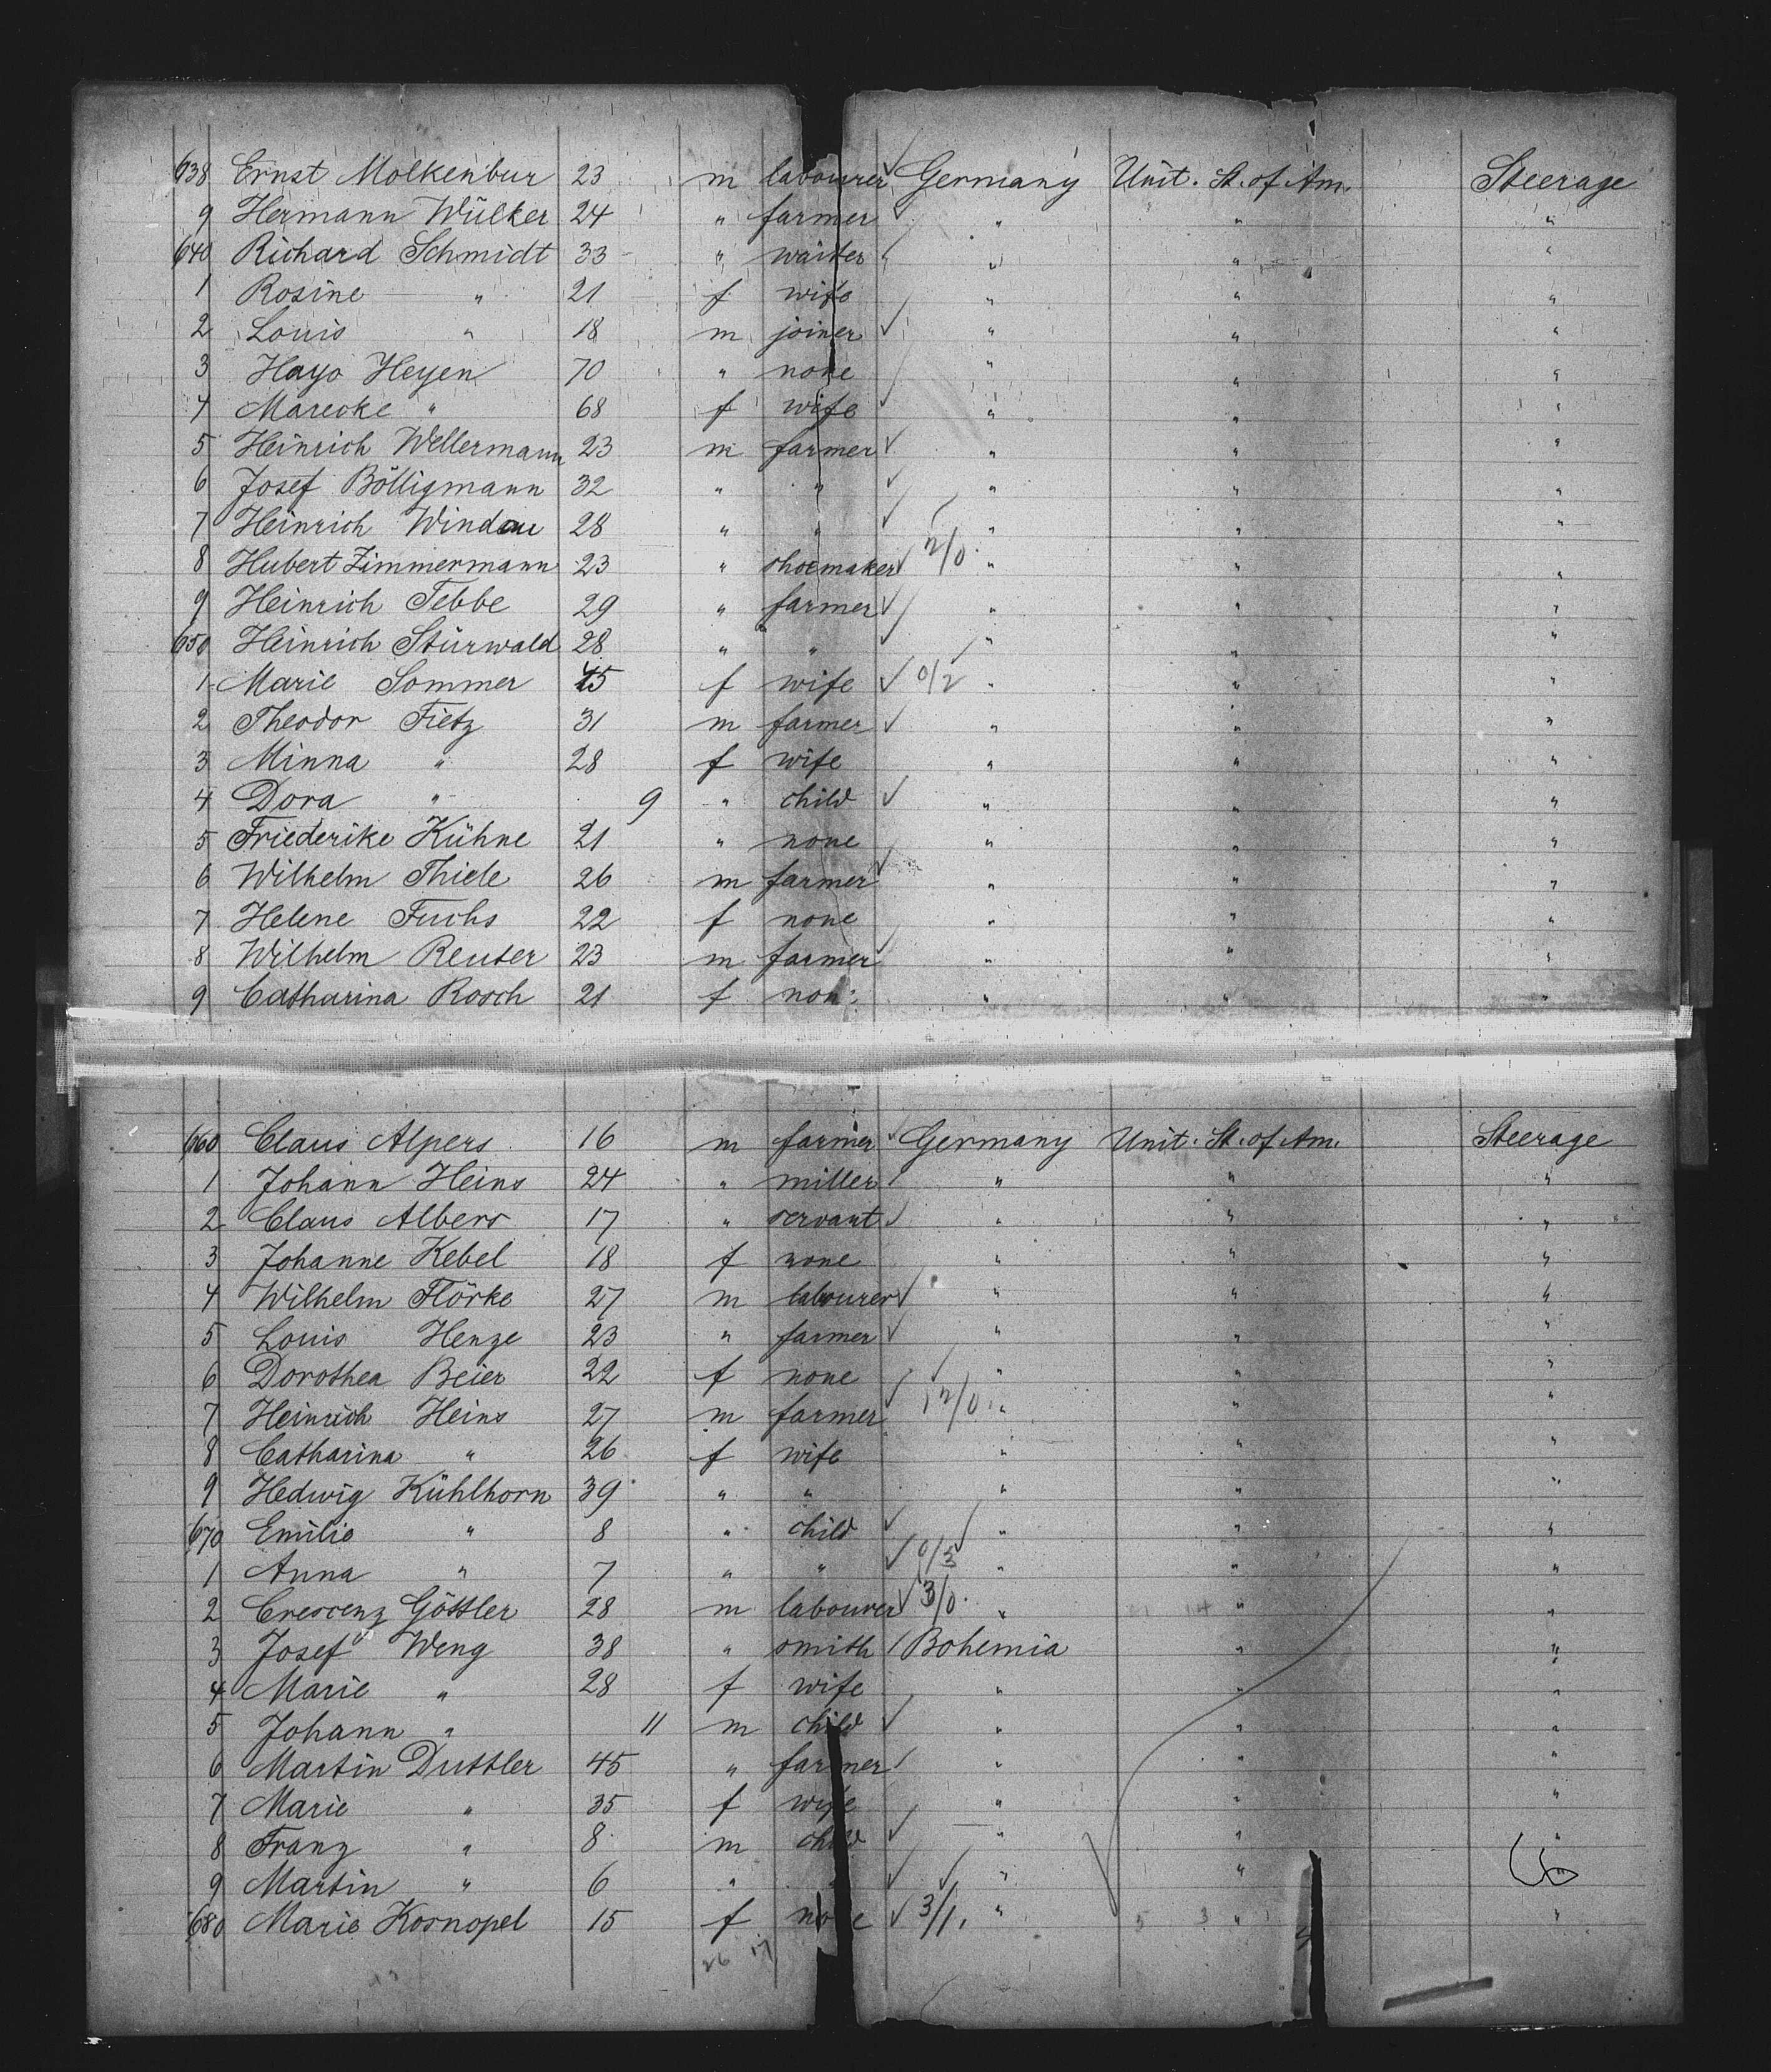 638 Ernst Molkenbur 23 m labourer Germany Unit. St. of Am. Steerage
9 Hermann Wülker 24 " farmer " " "
640 Richard Schmidt 33 " waiter " " "
1 Rosine " 21 f wife " " "
2 Louis " 18 m joiner " " "
3 Hayo Heyen 70 " none " " "
4 Marecke " 68 f wife " " "
5 Heinrich Wellermann 23 m farmer " " "
6 Josef Bölligmann 32 " " " " "
7 Heinrich Windau 28 " " " " "
8 Hubert Zimmermann 23 " shoemaker 2/0 " " "
9 Heinrich Tebbe 29 " farmer " " "
650 Heinrich Stürwald 28 " " " " "
1 Marie Sommer 45 f wife 0/2 " " "
2 Theodor Fietz 31 m farmer " " "
3 Minna " 28 f wife " " "
4 Dora " 9 " child " " "
5 Friederike Kühne 21 " none " " "
6 Wilhelm Thiele 26 m farmer " " "
7 Helene Fuchs 22 f none " " "
8 Wilhelm Reuter 23 m farmer " " "
9 Catharina Rosch 21 f none " " "
660 Claus Alpers 16 m farmer Germany Unit. St. of Am. Steerage
1 Johann Heins 24 " miller " " "
2 Claus Albers 17 " servant " " "
3 Johanne Kebel 18 f none " " "
4 Wilhelm Flörke 27 m labourer " " "
5 Louis Henze 23 " farmer " " "
6 Dorothea Beier 22 f none " " "
7 Heinrich Heins 27 m farmer 12/0 " " "
8 Catharina " 26 f wife " " "
9 Hedwig Kühlhorn 39 " " " " "
670 Emilie " 8 " child " " "
1 Anna " 7 " " 0/3 " " "
2 Crescenz Göttler 28 m labourer 3/0 " " "
3 Josef Weng 38 " smith Bohemia " "
4 Marie " 28 f wife " " "
5 Johann " 11 m child " " "
6 Martin Duttler 45 " farmer " " "
7 Marie " 35 f wife " " "
8 Franz " 8 m child " " "
9 Martin " 6 " " " " "
680 Marie Kosnopel 15 f none 3/1. " " "
26 17